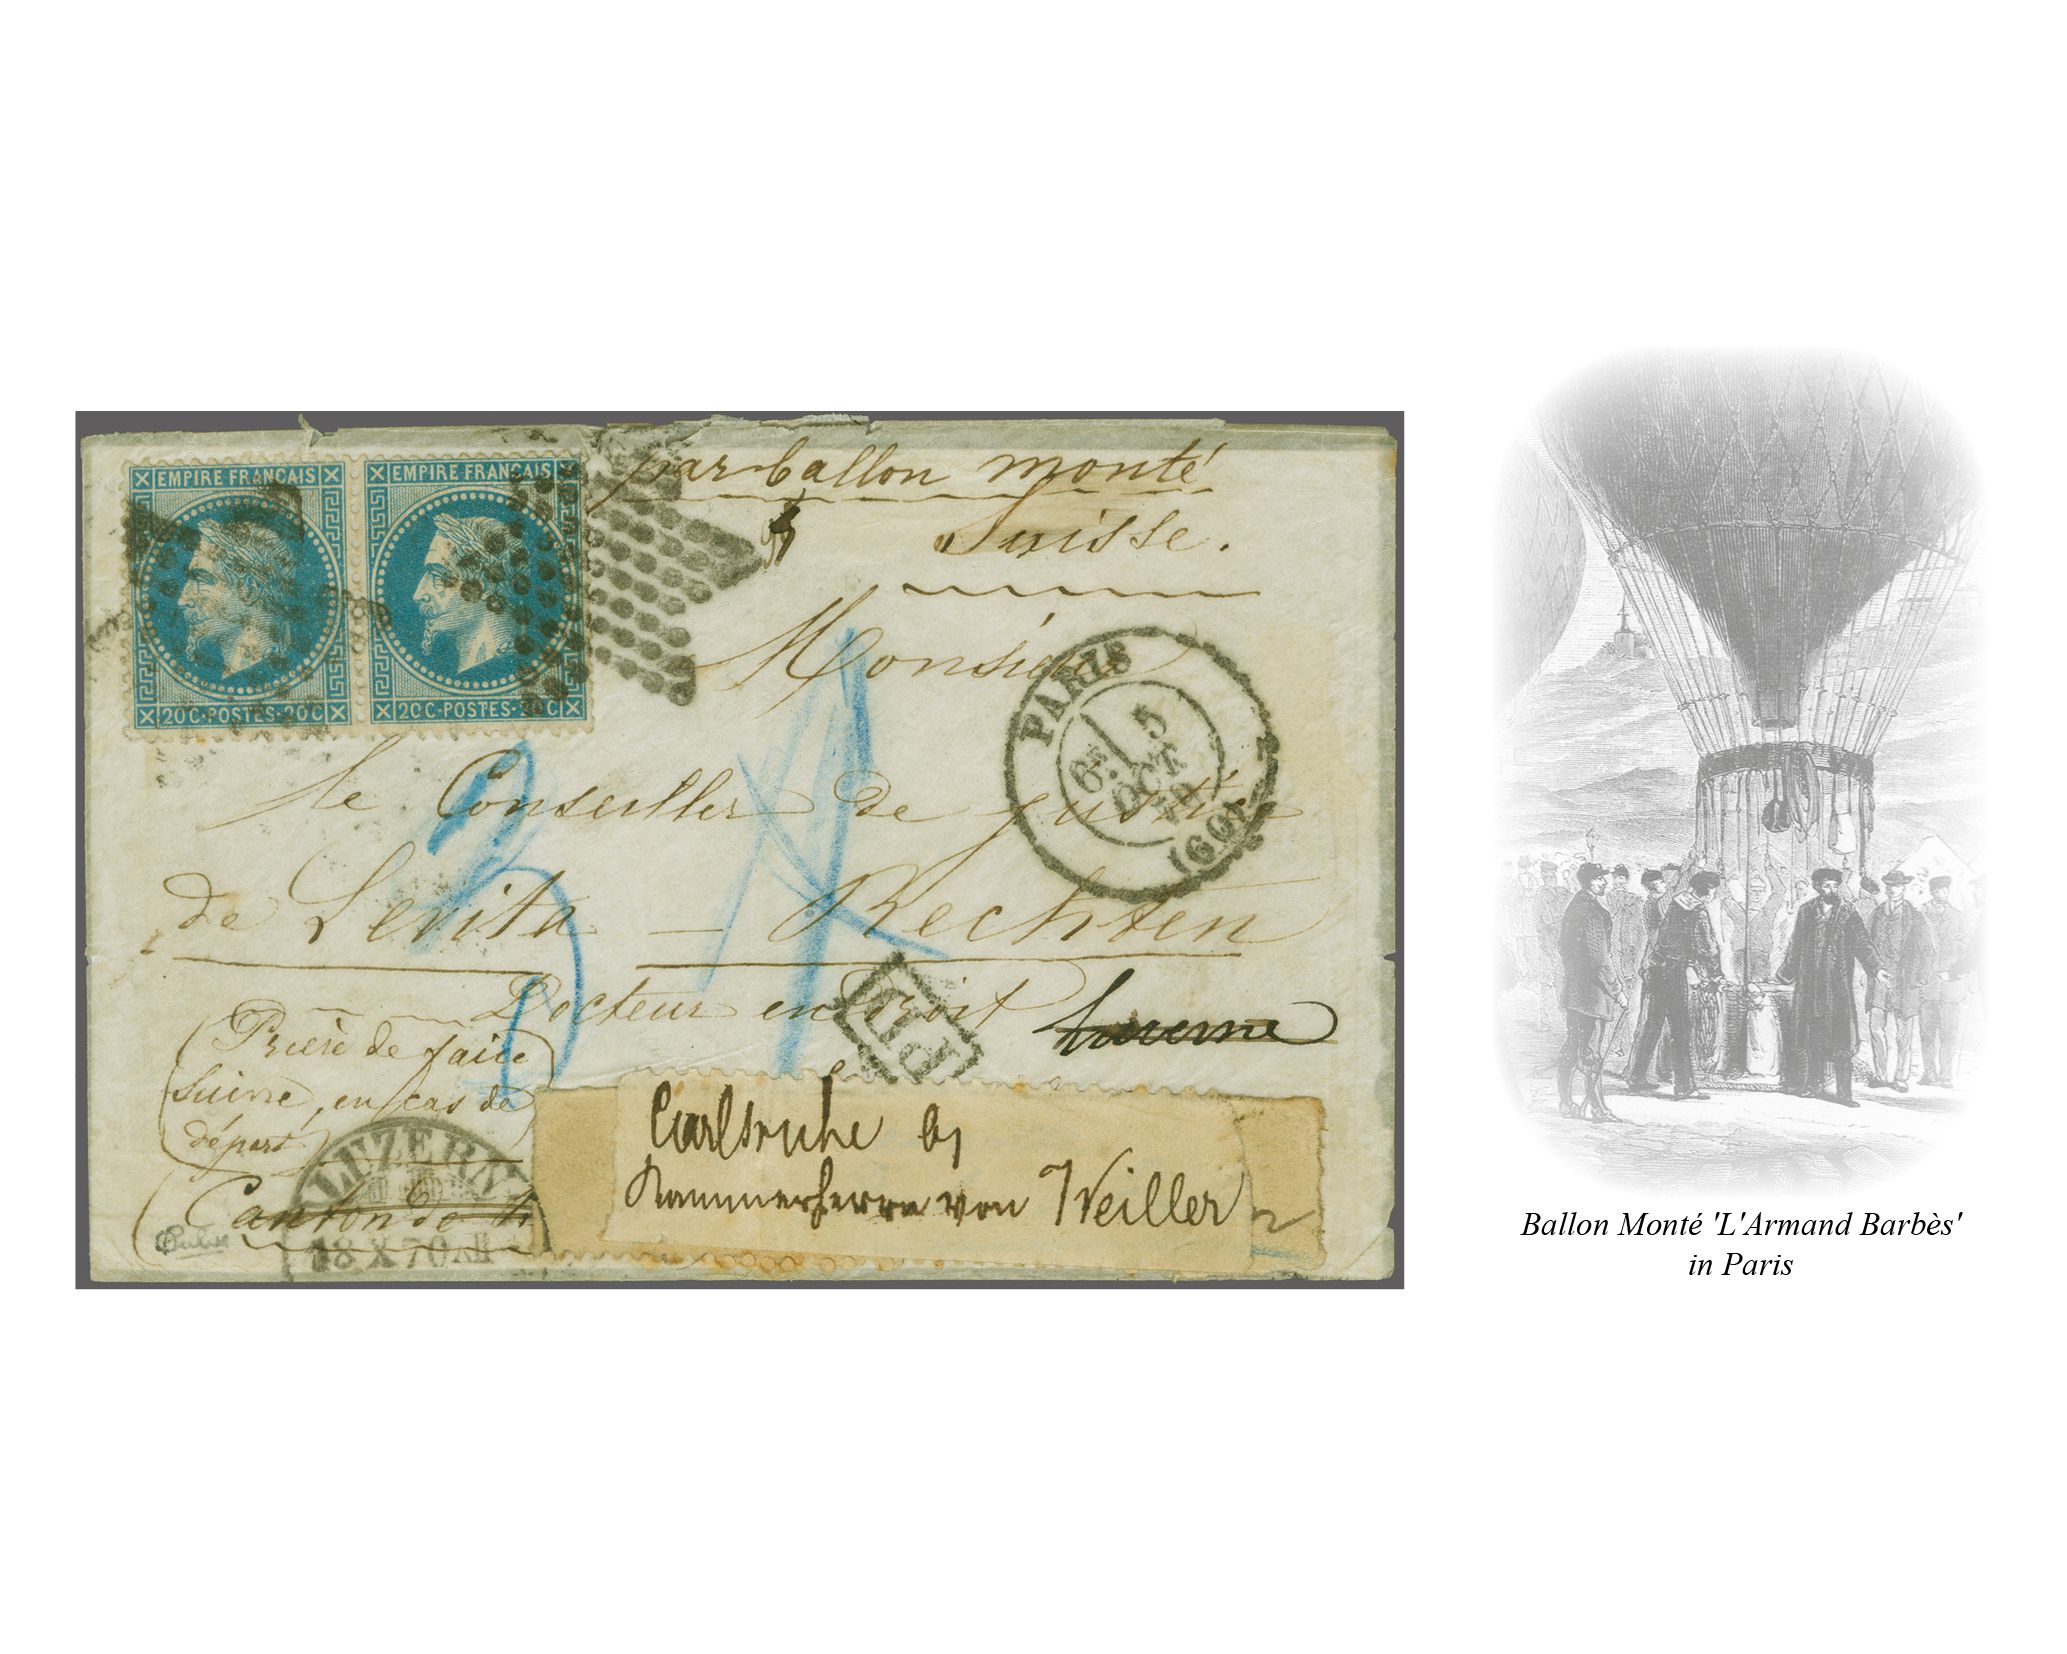 EMPIRE FRANÇAIS
20C·POSTES·20C
EMPIRE FRANÇAIS
20C·POSTES·20C
par ballon monté
Suisse.
Monsieur
PARIS
5
OCT
70
(60)
le Conseiller de
de Levita — Rechten
Docteur en Droit Lucerne
PD
Prière de faire
suivre, en cas de
départ
Canton de
LUZERN
18 X 70
Carlsruhe by
Kammerherrn von Weiller
Ballon Monté 'L'Armand Barbès'
in Paris